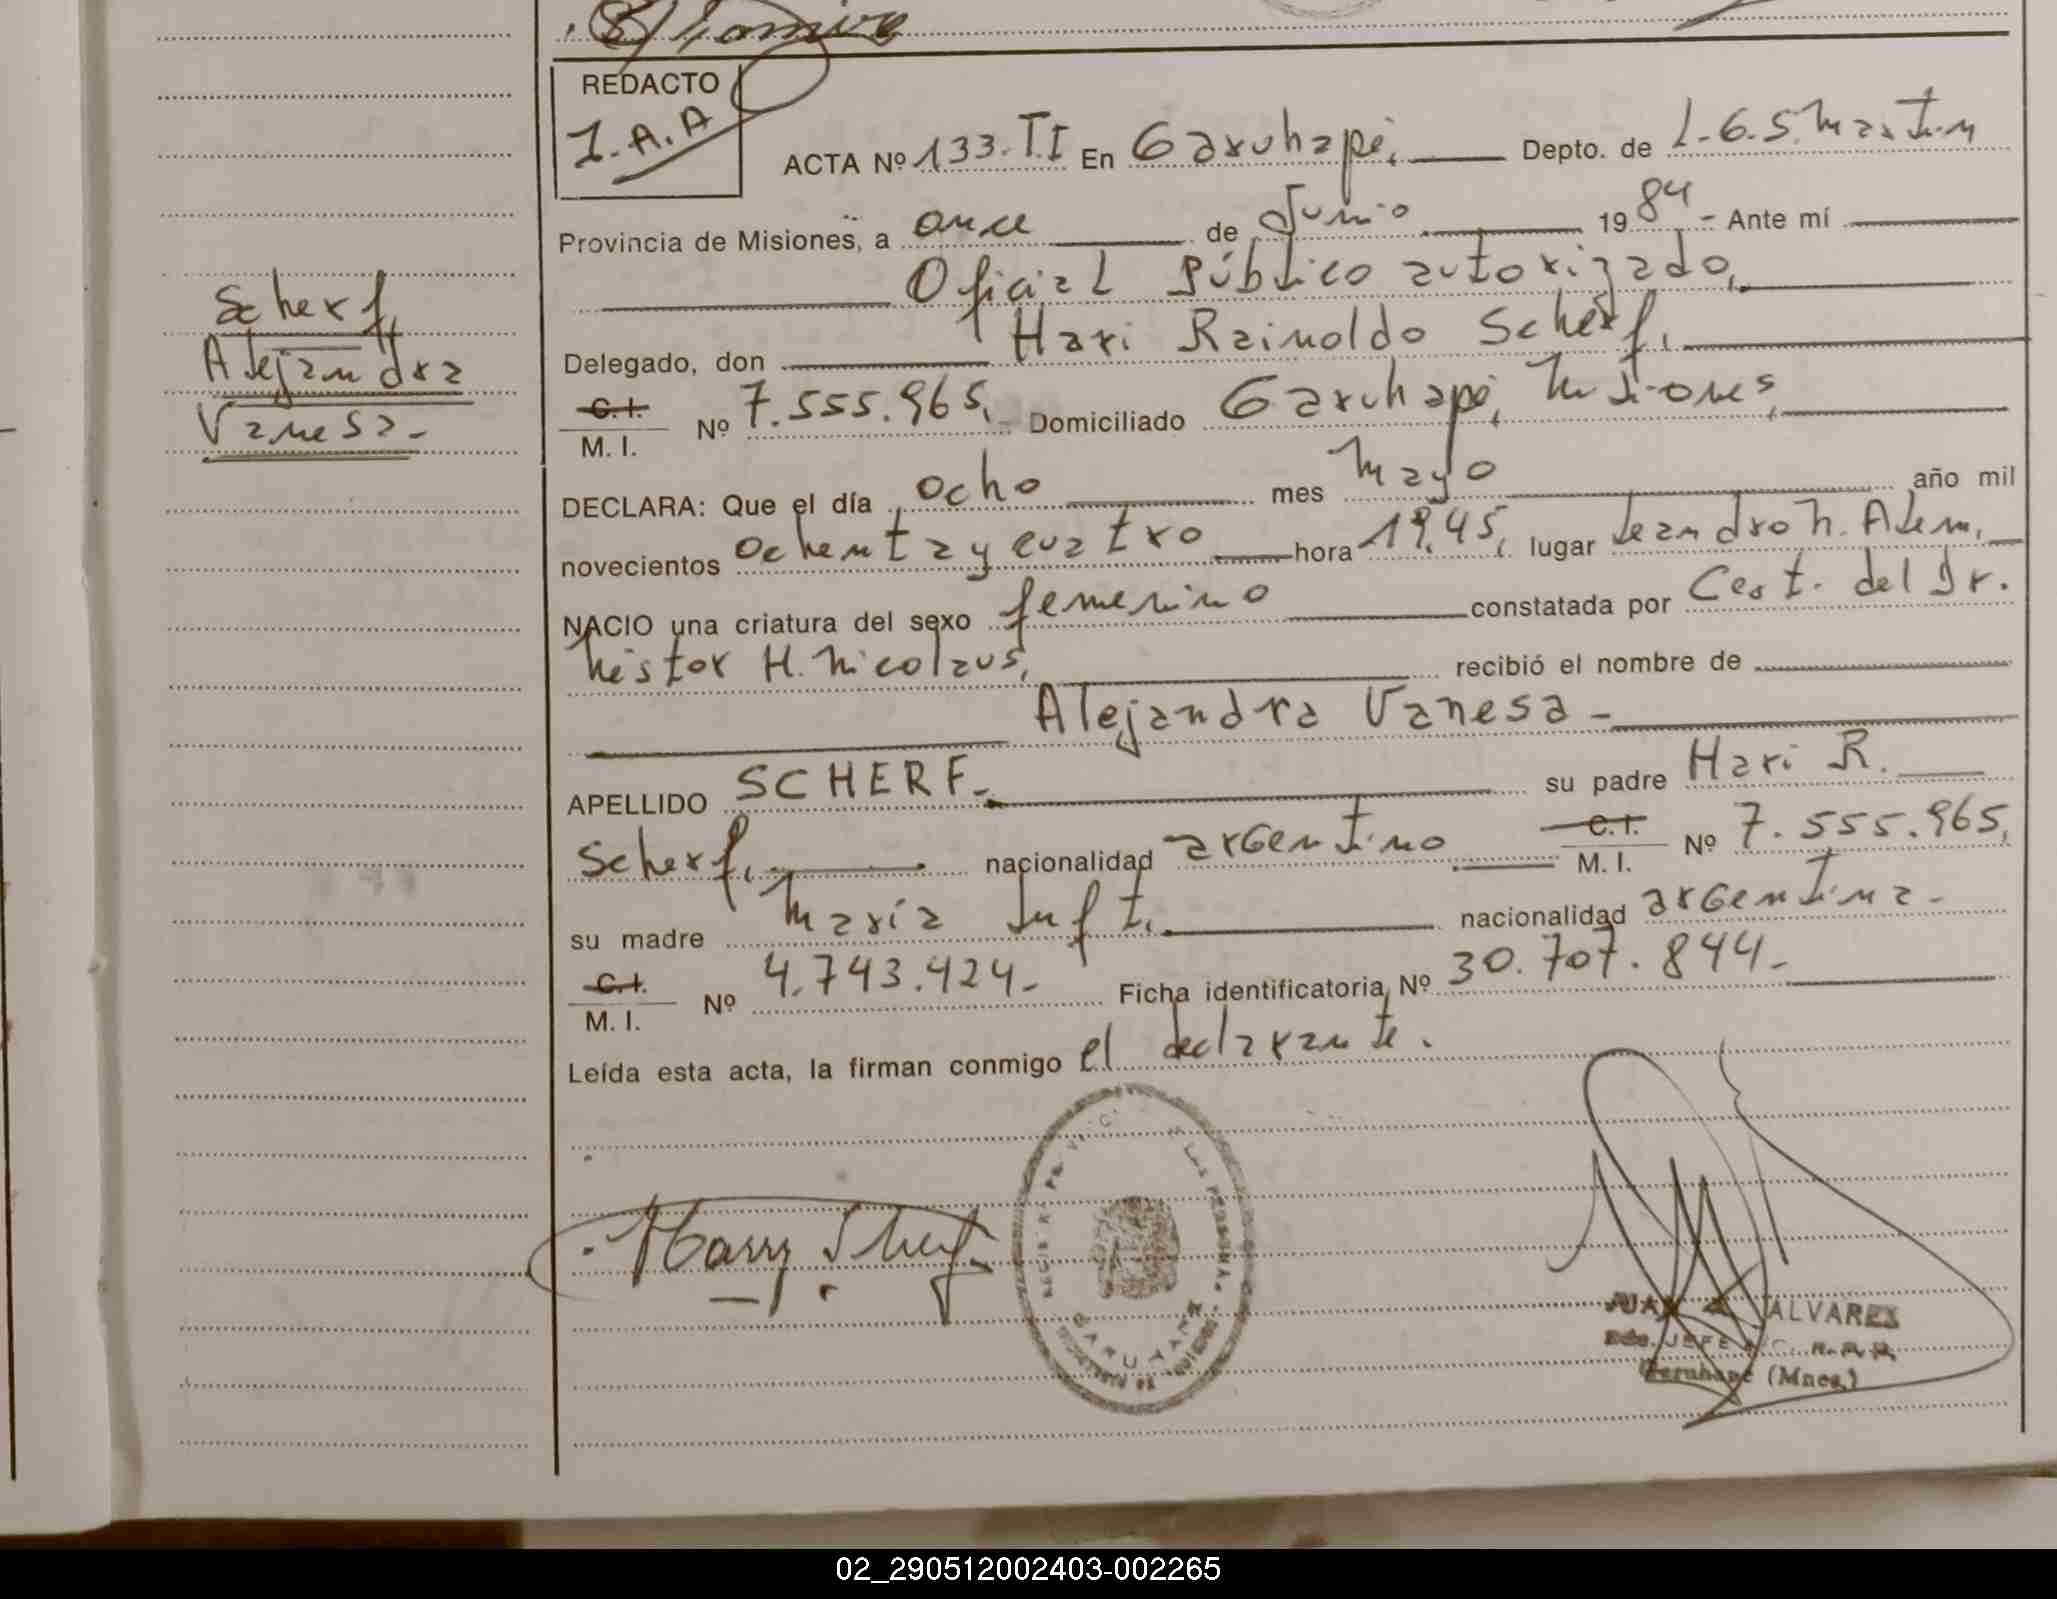 REDACTO
I.A.A
ACTA Nº 133.T.I En Garuhapé, Depto. de L.G.S.Martin
Provincia de Misiones, a once de Junio 1984 - Ante mí
Oficial Público autorizado,
Delegado, don Hari Reinoldo Scherf,
C.I.
M. I. Nº 7.555.965, Domiciliado Garuhapé, Misiones,
DECLARA: Que el día ocho mes mayo año mil
novecientos ochenta y cuatro hora 19,45, lugar Leandro N. Alem,
NACIO una criatura del sexo femenino constatada por Cest. del Dr.
Néstor H. Nicolaus, recibió el nombre de
Alejandra Vanesa -
APELLIDO SCHERF.- su padre Hari R.
Scherf, nacionalidad argentino C.I. M. I. Nº 7.555.965,
su madre María Juft, nacionalidad argentina.-
C.I.
M. I. Nº 4.743.424.- Ficha identificatoria Nº 30.707.844.-
Leída esta acta, la firman conmigo el declarante.
Scherf,
Alejandra
Vanesa.-
ALVAREZ
JEFE
Garuhapé (Mnes.)
02_290512002403-002265